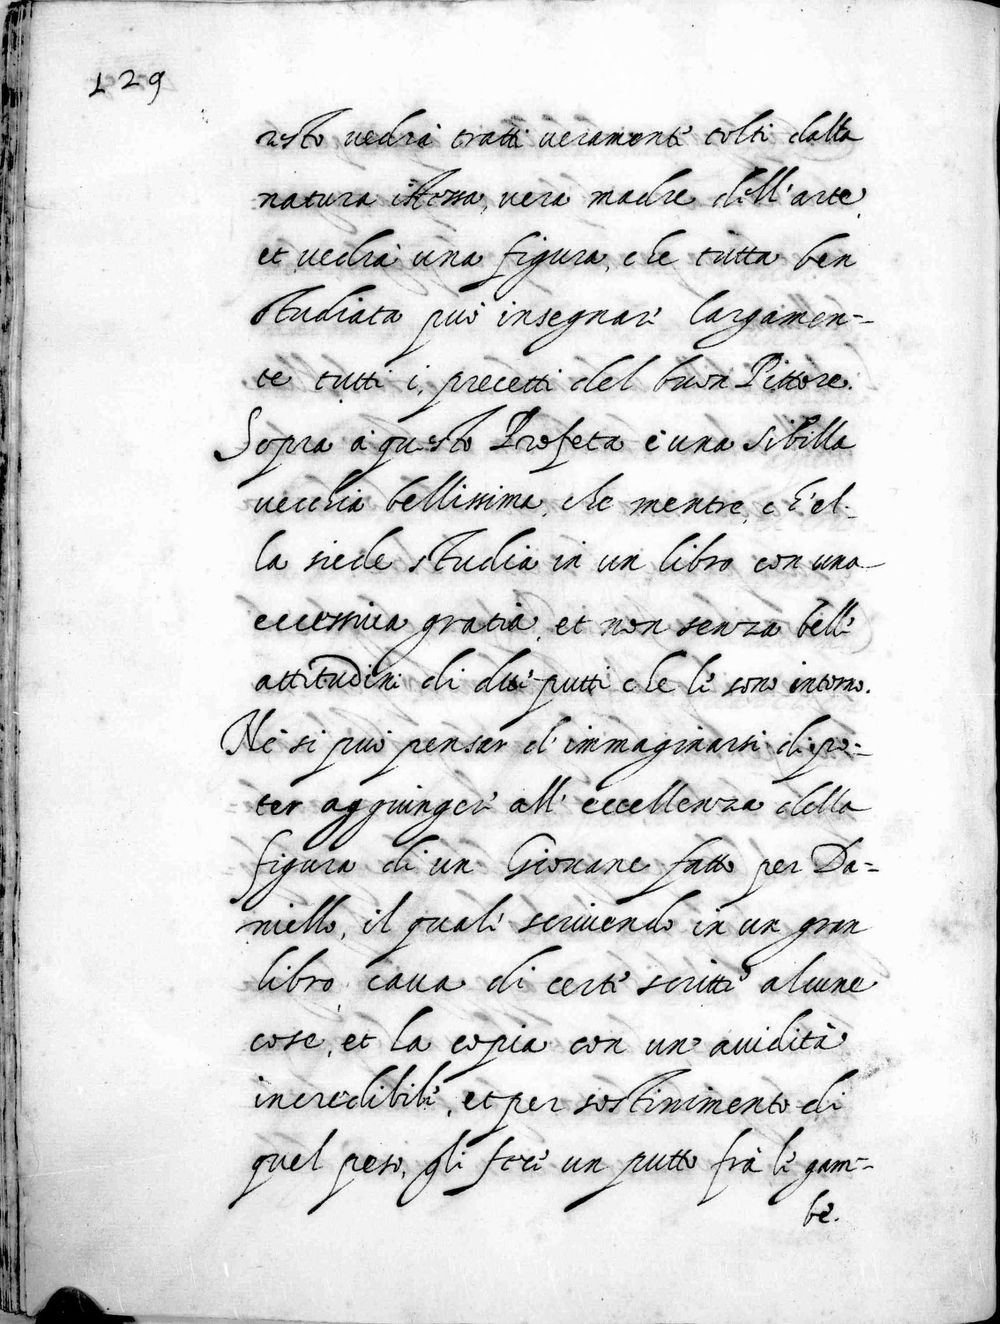 129
resto vedrà tratti veramente tolti dalla
natura istessa, vera madre dell'arte,
et vedrà una figura, che tutta ben
studiata può insegnare largamen-
te tutti i precetti del buon Pittore.
Sopra à questo Profeta è una Sibilla
vecchia bellissima, che mentre, ch'el-
la siede studia in un libro con una
eccessiva gratia, et non senza belle
attitudini di due putti che le sono intorno.
Nè si può pensar d'immaginarsi di po-
ter aggiungere all'eccellenza della
figura di un Giovane fatto per Da-
niello, il quale scrivendo in un gran
libro, cava di certe scritte alcune
cose, et la copia con un'avidità
incredibile, et per sostinimento di
quel peso, gli fece un putto frà le gam-
be.